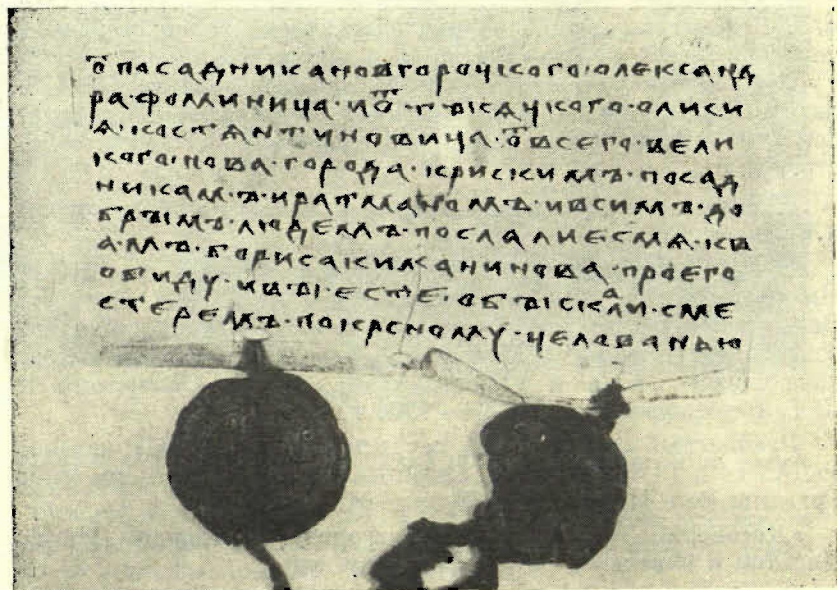 ѿ посадника новгороцкого · олександ
ра · фоминича · и ѿ · тъісѧцкого · олиси
ѧ · костѧнтиновича · ѿ всего · вели
кого · нова · города · криским · посад
никамъ · и ратманомъ · и всимъ · до
бръімъ · людемъ · послали есмѧ · къ
вамъ · бориса про его
обиду · и въі · есте · объіскали · с ме
стеремъ · по крсному · челованью